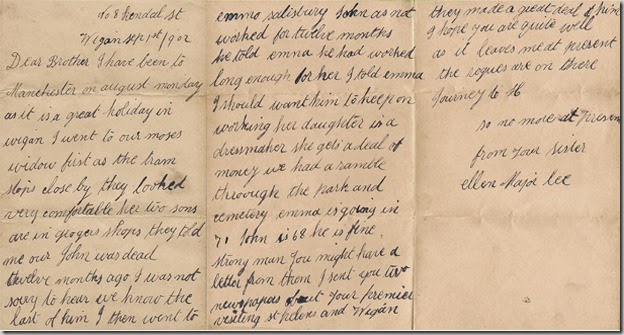 to 8 Kendal st
Wigan Sep 1st/902
Dear Brother I have been to
Manchester on august monday
as it is a great holiday in
wigan I went to our moses
widow first as the tram
stops close by they looked
very comfortable her two sons
are in grogers shops they told
me our John was dead
twelve months ago I was not
sorry to hear we know the
last of him I then went to
emma salisbury John as not
worked for twelve months
he told emma he had worked
long enough for her I told emma
I should want him to keep on
working her daughter is a
dressmaker she gets a deal of
money we had a ramble
through the Park and
cemetery emma is going in
71 John is 68 he is fine
strong man you might have a
letter from them I sent you two
newspapers about your Premier
visiting st helens and Wigan
they made a great deal of him
I hope you are quite well
as it leaves me at present
the rogues are on there
Journey to
so no more at Present
from your sister
ellen Major lee